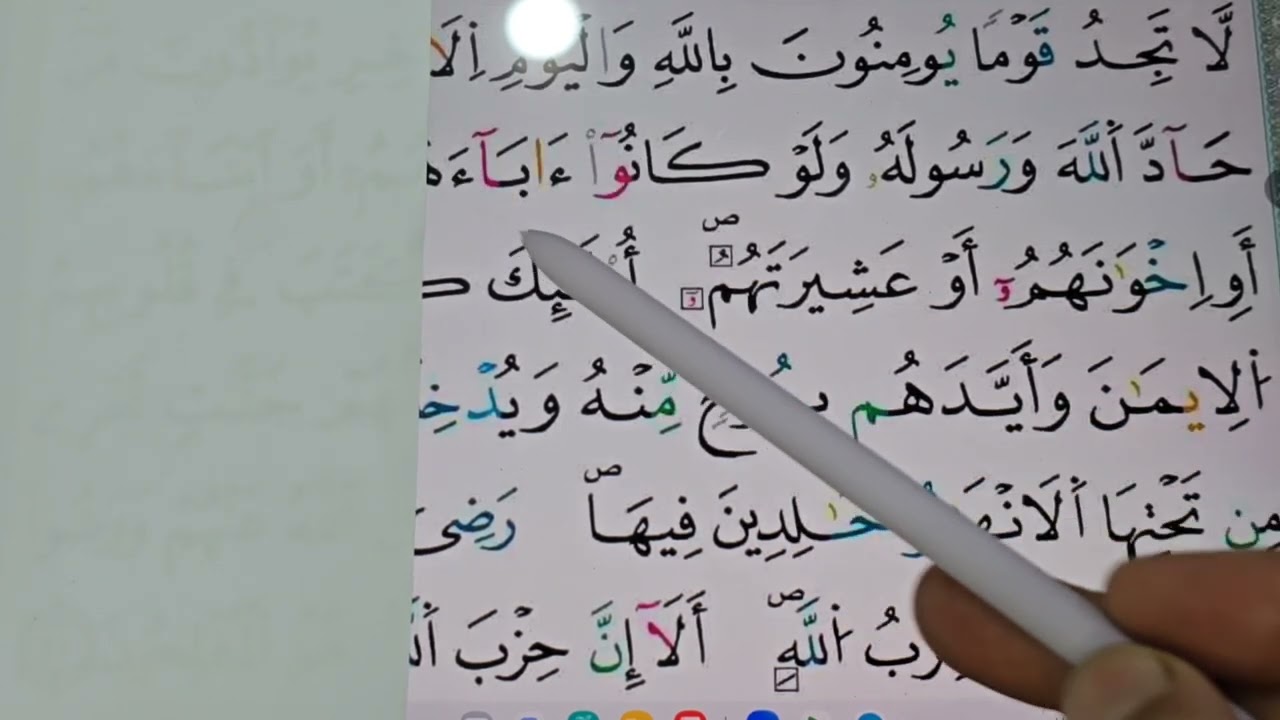 لَّا تَجِدُ قَوْمًا يُومِنُونَ بِاللَّهِ وَالْيَوْمِ اِلَا
حَآدَّ اَللَّهَ وَرَسُولَهُۥ وَلَوْ كَانُوٓاْ ءَابَآءَهُ
أَوِ اِخْوَٰنَهُمُۥٓ أَوْ عَشِيرَتَهُم ص
اَلِايمَٰنَ وَأَيَّدَهُم مِّنْهُ وَيُدْخِ
مِن تَحْتِهَا اَلَانْهَ خَٰلِدِينَ فِيهَا ص رَضِيَ
اُللَّهِ ص أَلَآ إِنَّ حِزْبَ اَللَّ